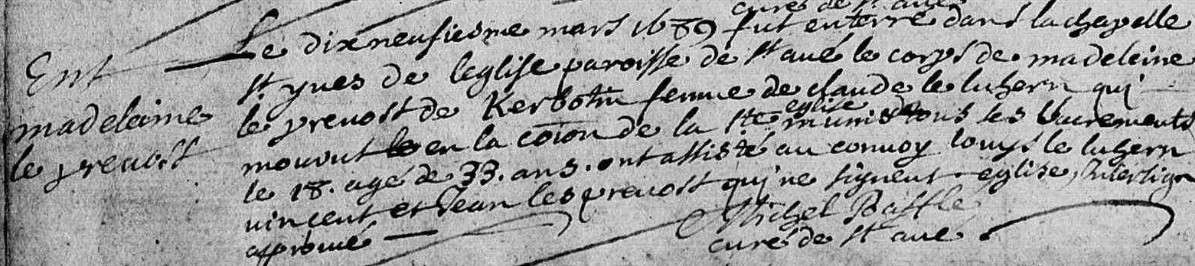 curé de st aué
Le dixneufiesme mars 1689 fut enterré dans la chapelle
Ent
st yues de leglise paroisse de st aué le corps de madeleine
madeleine
le preuost de Kerbotin femme de claude le luhern qui
le preuost
mourut en la coion de la ste eglise munie de tous les sacrements
le 18. agé de 33. ans. ont assisté au conuoy louys le luhern
vincent et Jean les preuost qui ne signent. eglise, Interligne
approuué
Michel
curé de st aué